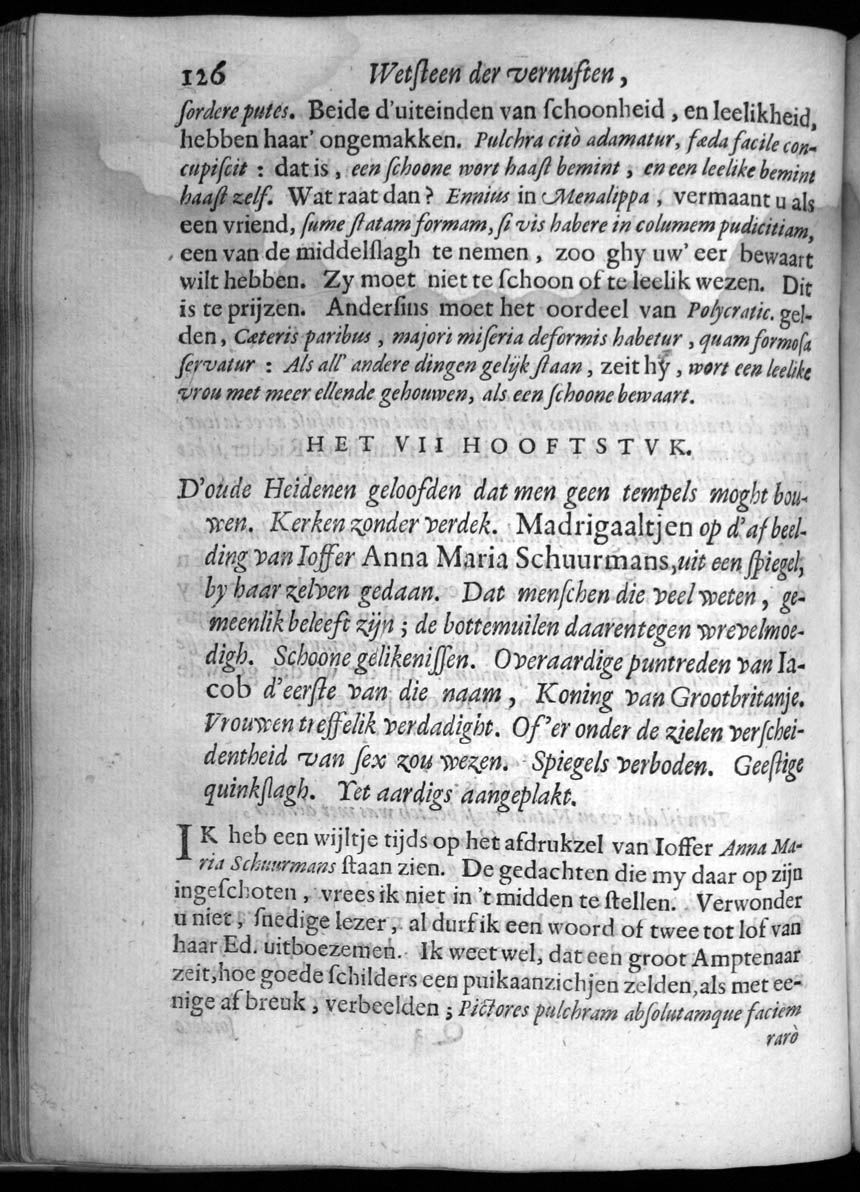 126 Wetſteen der vernuften,
ſordere putes. Beide d'uiteinden van ſchoonheid, en leelikheid,
hebben haar' ongemakken. Pulchra citò adamatur, fœda facile con-
cupiſcit : dat is, een ſchoone wort haaſt bemint, en een leelike bemint
haaſt zelf. Wat raat dan? Ennius in Menalippa, vermaant u als
een vriend, ſume ſtatam formam, ſi vis habere in columem pudicitiam,
een van de middelſlagh te nemen, zoo ghy uw' eer bewaart
wilt hebben. Zy moet niet te ſchoon of te leelik wezen. Dit
is te prijzen. Anderſins moet het oordeel van Polycratic. gel-
den, Cæteris paribus, majori miſeria deformis habetur, quam formoſa
ſervatur : Als all' andere dingen gelijk ſtaan, zeit hy, wort een leelike
vrou met meer ellende gehouwen, als een ſchoone bewaart.
HET VII HOOFTSTVK.
D'oude Heidenen geloofden dat men geen tempels moght bou-
wen. Kerken zonder verdek. Madrigaaltjen op d'af beel-
ding van Ioffer Anna Maria Schuurmans, uit een ſpiegel,
by haar zelven gedaan. Dat menſchen die veel weten, ge-
meenlik beleeft zijn; de bottemuilen daarentegen wrevelmoe-
digh. Schoone gelikeniſſen. Overaardige puntreden van Ia-
cob d'eerſte van die naam, Koning van Grootbritanje.
Vrouwen treffelik verdadight. Of'er onder de zielen verſchei-
dentheid van ſex zou wezen. Spiegels verboden. Geeſtige
quinkſlagh. Yet aardigs aangeplakt.
IK heb een wijltje tijds op het afdrukzel van Ioffer Anna Ma-
ria Schuurmans ſtaan zien. De gedachten die my daar op zijn
ingeſchoten, vrees ik niet in 't midden te ſtellen. Verwonder
u niet, ſnedige lezer, al durf ik een woord of twee tot lof van
haar Ed. uitboezemen. Ik weet wel, dat een groot Amptenaar
zeit, hoe goede ſchilders een puikaanzichjen zelden, als met ee-
nige af breuk, verbeelden; Pictores pulchram abſolutamque faciem
rarò